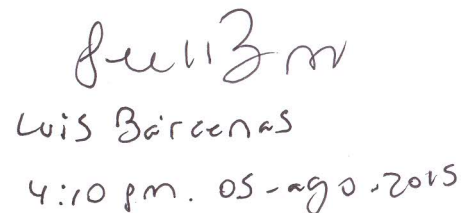 Luis Bárcenas
4:10 pm. 05-ago-2015